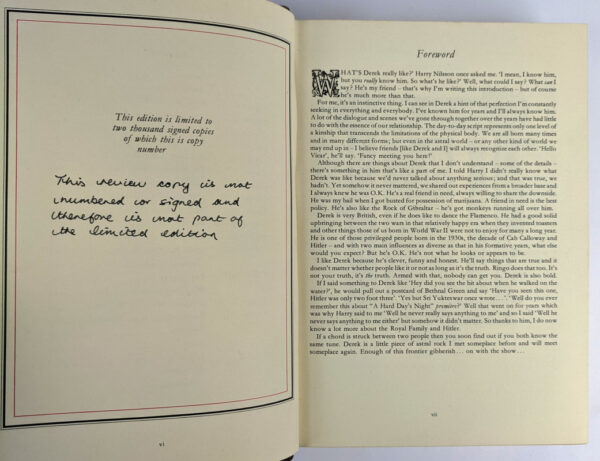 This edition is limited to
two thousand signed copies
of which this is copy
number
This review copy is not
numbered or signed and
therefore is not part of
the limited edition
vi
Foreword
WHAT'S Derek really like?' Harry Nilsson once asked me. 'I mean, I know him,
but you really know him. So what's he like?' Well, what could I say? What can I
say? He's my friend – that's why I'm writing this introduction – but of course
he's much more than that.
For me, it's an instinctive thing. I can see in Derek a hint of that perfection I'm constantly
seeking in everything and everybody. I've known him for years and I'll know him always.
A lot of the dialogue and scenes we've gone through together over the years have had little
to do with the essence of our relationship. The day-to-day script represents only one level of
a kinship that transcends the limitations of the physical body. We are all born many times
and in many different forms; but even in the astral world – or any other kind of world we
may end up in – I believe friends [like Derek and I] will always recognize each other. 'Hello
Vieux', he'll say. 'Fancy meeting you here!'
Although there are things about Derek that I don't understand – some of the details –
there's something in him that's like a part of me. I told Harry I didn't really know what
Derek was like because we'd never talked about anything serious; and that was true, we
hadn't. Yet somehow it never mattered, we shared out experiences from a broader base and
I always knew he was O.K. He's a real friend in need, always willing to share the downside.
He was my bail when I got busted for possession of marijuana. A friend in need is the best
policy. He's also like the Rock of Gibraltar – he's got monkeys running all over him.
Derek is very British, even if he does like to dance the Flamenco. He had a good solid
upbringing between the two wars in that relatively happy era when they invented toasters
and other things those of us born in World War II were not to enjoy for many a long year.
He is one of those privileged people born in the 1930s, the decade of Cab Calloway and
Hitler – and with two main influences as diverse as that in his formative years, what the
would you expect? But he's O.K. He's not what he looks or appears to be.
I like Derek because he's clever, funny and honest. He'll say things that are true and it
doesn't matter whether people like it or not as long as it's the truth. Ringo does that too. It's
not your truth, it's the truth. Armed with that, nobody can get you. Derek is also bold.
If I said something to Derek like 'Hey did you see the bit about when he walked on the
water?', he would pull out a postcard of Bethnal Green and say 'Have you seen this one,
Hitler was only two foot three'. 'Yes but Sri Yukteswar once wrote . . .'. 'Well do you ever
remember this about "A Hard Day's Night" première?' Well that went on for years which
was why Harry said to me 'Well he never really says anything to me' and so I said 'Well he
never says anything to me either' but somehow it didn't matter. So thanks to him, I do now
know a lot more about the Royal Family and Hitler.
If a chord is struck between two people then you soon find out if you both know the
same tune. Derek is a little piece of astral rock I met someplace before and will meet
someplace again. Enough of this frontier gibberish . . . on with the show . . .
vii